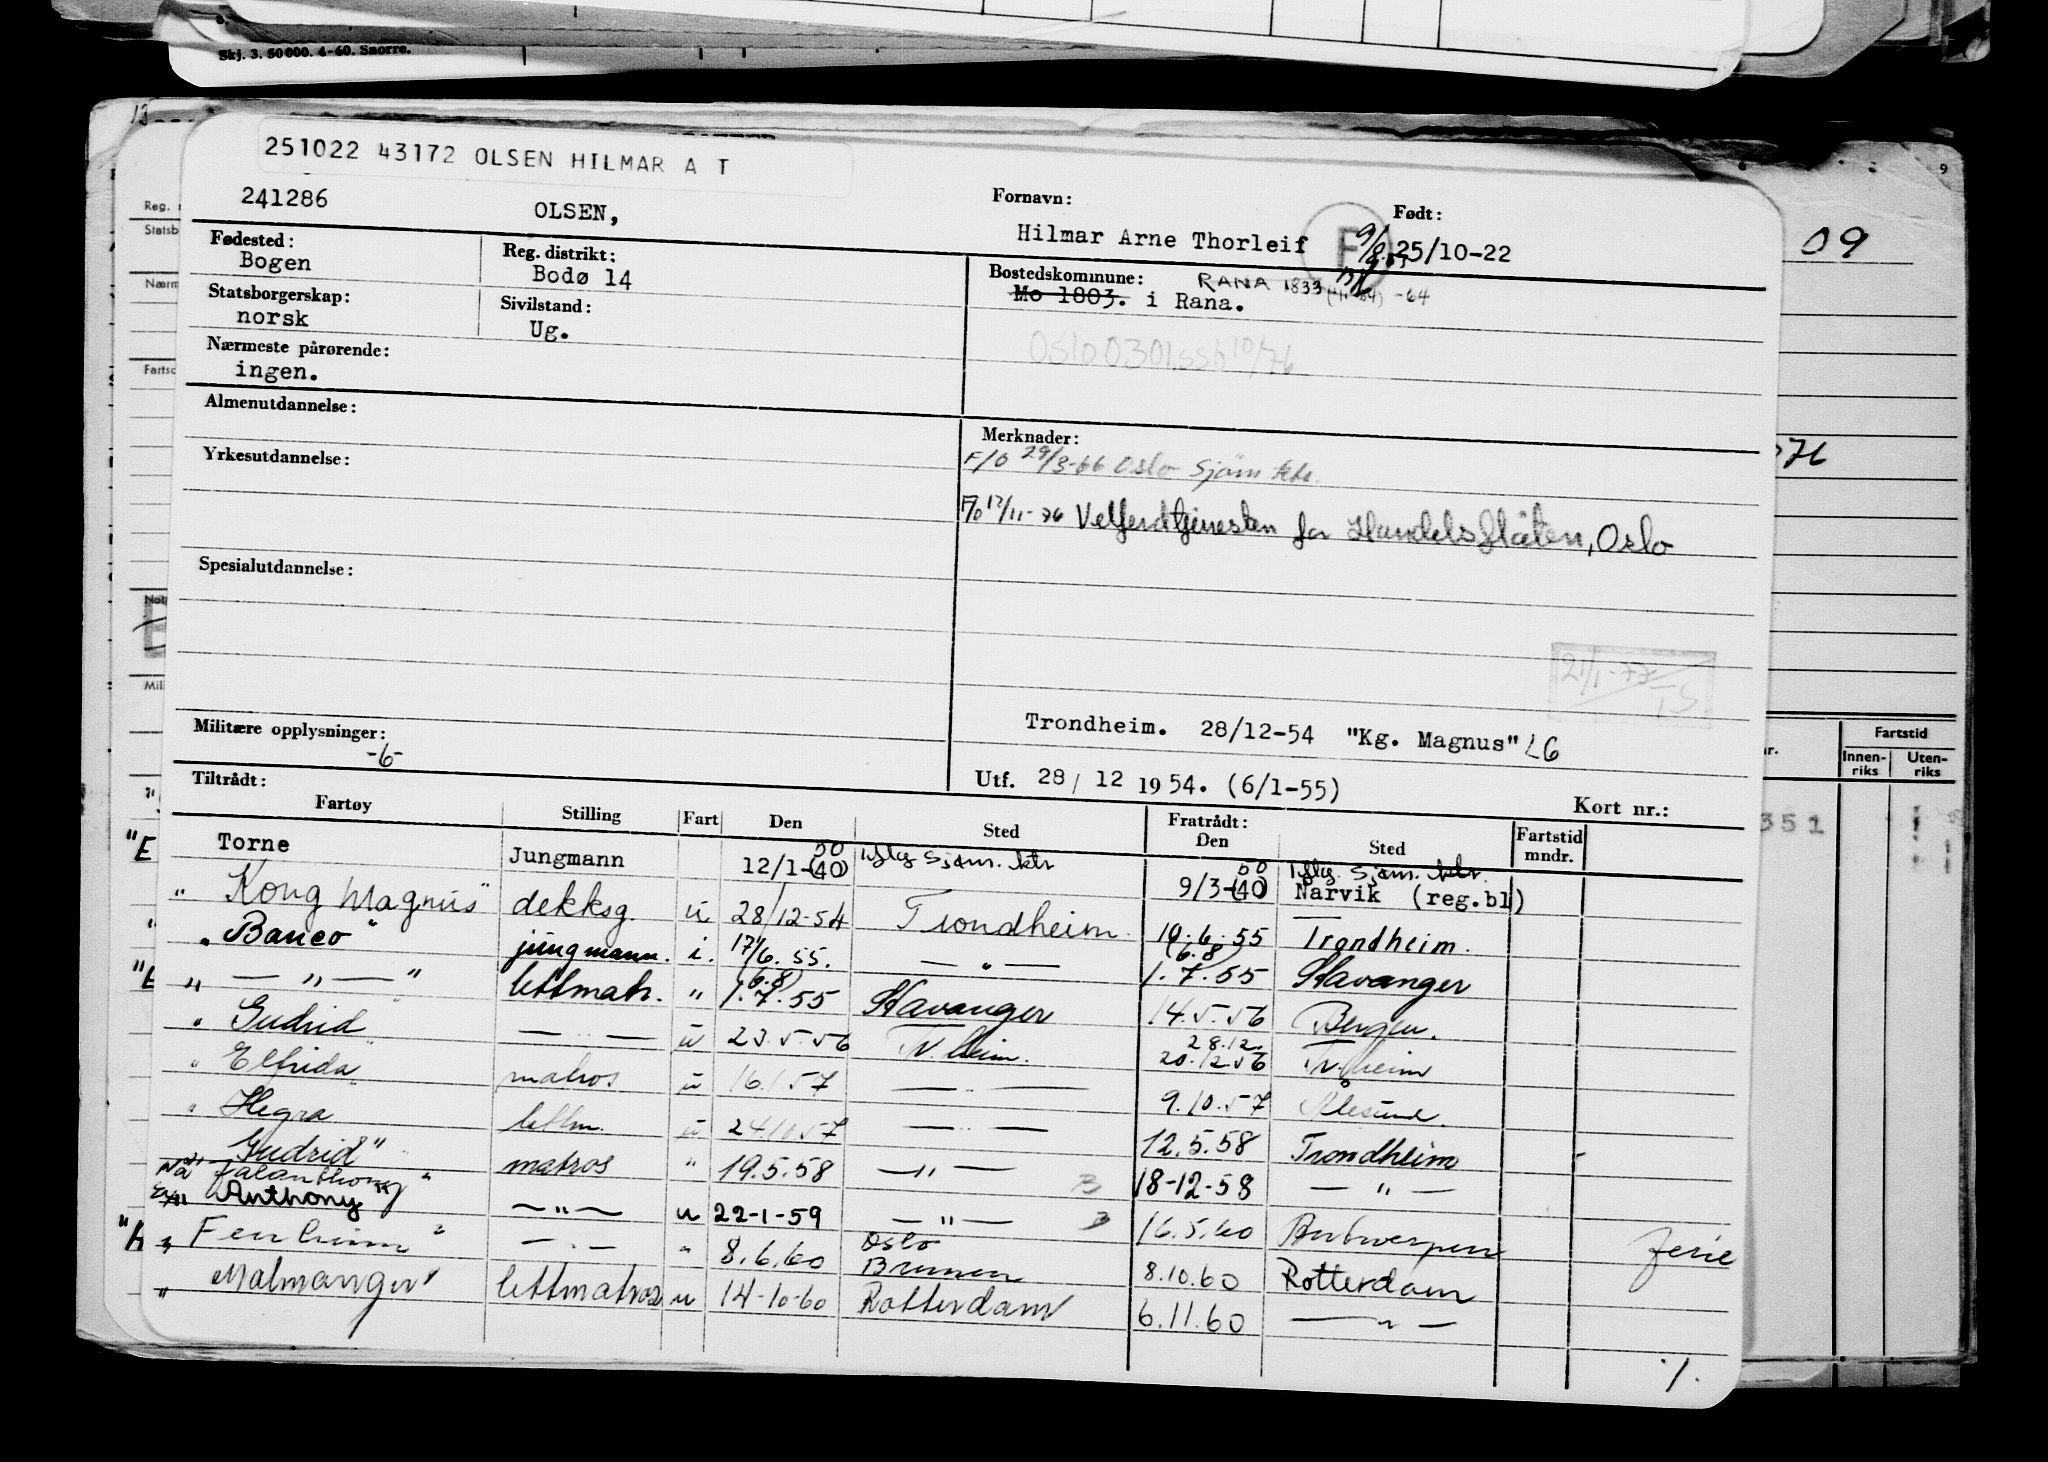 Skj. 3. 50000. 4-60. Snorre.
251022 43172 OLSEN HILMAR A T
241286 OLSEN, Fornavn: Hilmar Arne Thorleif Født: 25/10-22
F
09
Fødested: Bogen Reg. distrikt: Bodø 14 Bostedskommune: Mo 1803. i Rana. RANA 1833 -64
Statsborgerskap: norsk Sivilstand: Ug.
Oslo 0301 ssb 10/76
Nærmeste pårørende: ingen.
Almenutdannelse:
Merknader:
F/O 29/3-66 Oslo Sjøm. ktr.
Yrkesutdannelse:
F/O 17/11-76 Velferdtjenesten for Handelsflåten, Oslo
Spesialutdannelse:
21/1-77 TS
Militære opplysninger: -6-
Trondheim. 28/12-54 "Kg. Magnus" LG
Utf. 28/12 1954. (6/1-55)
Kort nr.:
Tiltrådt: Fratrådt:
Fartøy Stilling Fart Den Sted Den Sted Fartstid mndr.
Fartstid
Innen-riks Uten-riks
351
"E Torne Jungmann 12/1-(40) 50 iflg Sjøm. ktr 9/3-(40) 50 iflg. Sjøm. ktr. Narvik (reg.bl)
" Kong Magnus" dekksg. u 28/12-54 Trondheim. 10.6.55 Trondheim.
" Banco" jungmann. i. 17/6.55. — " — 1.7.55 (6.8) Stavanger
"E " — " — " lettmatr. " 1.7.55 (6.8) Stavanger 14.5.56 Bergen.
" Gudrid — " — u 23.5.56 Tr.heim. 20.12.56 28.12. Tr.heim
" Elfrida" matros u 16.1.57 — " — 9.10.57 Ålesund.
" Hegra lettm. u 24.10.57 — " — 12.5.58 Trondheim
" Gudrid" matros " 19.5.58 — " — 18-12-58 — " —
Anthony" — " — u 22-1-59 — " — 16.5.60 Antwerpen ferie
"A " Fernheim" — " — " 8.6.60 Oslo Bremen 8.10.60 Rotterdam
" Malmanger" lettmatros u 14-10-60 Rotterdam 6.11.60 — " —